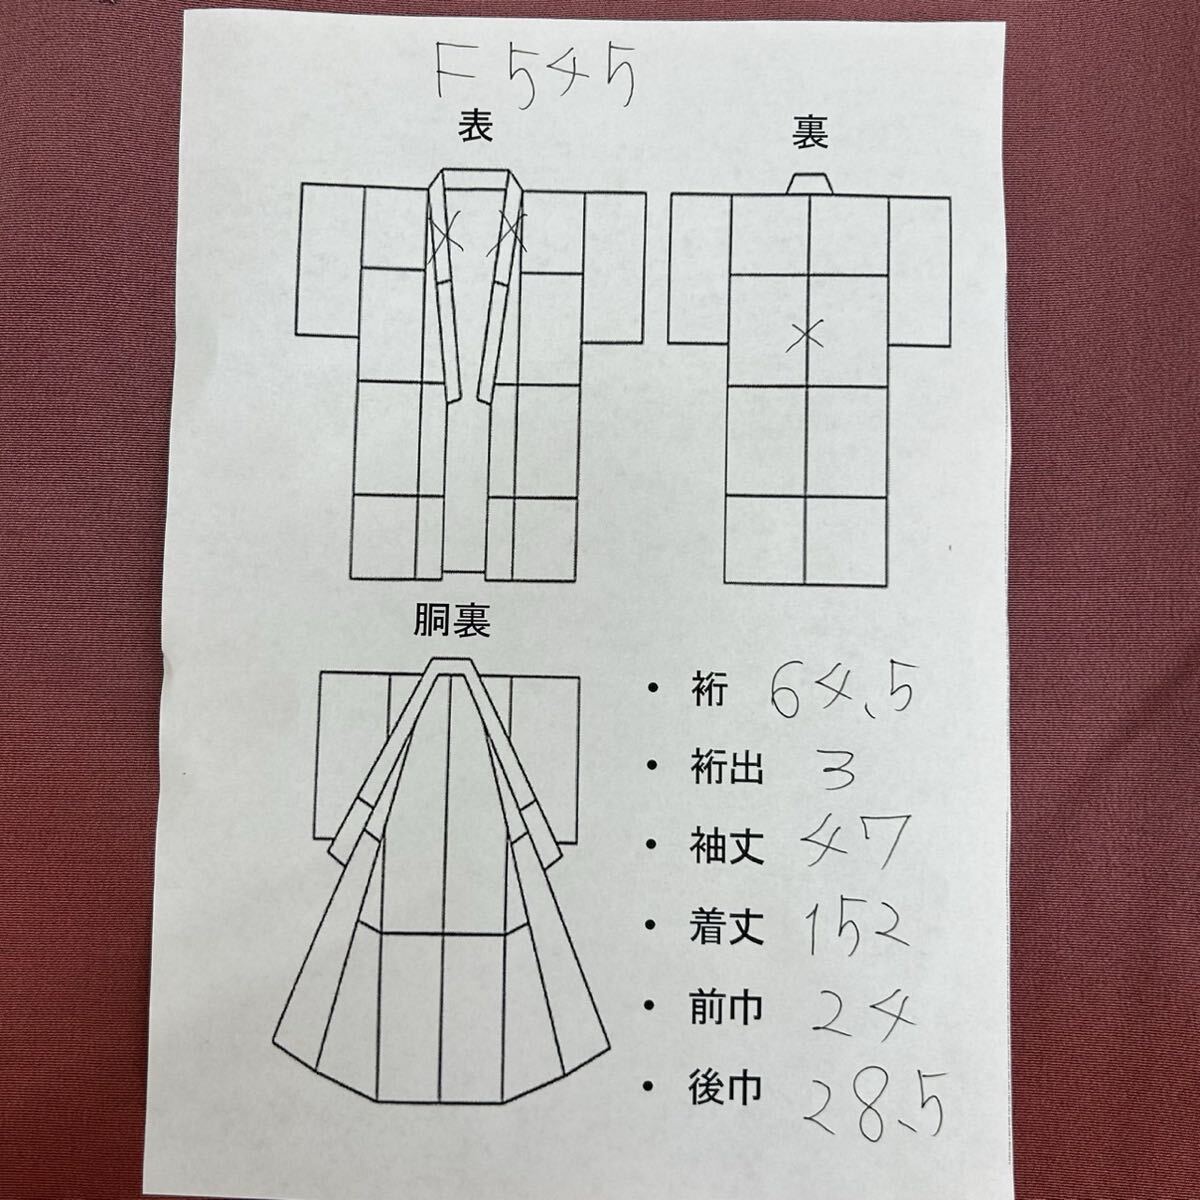 F545
表
裏
胴裏
・裄 64.5
・裄出 3
・袖丈 47
・着丈 152
・前巾 24
・後巾 28.5